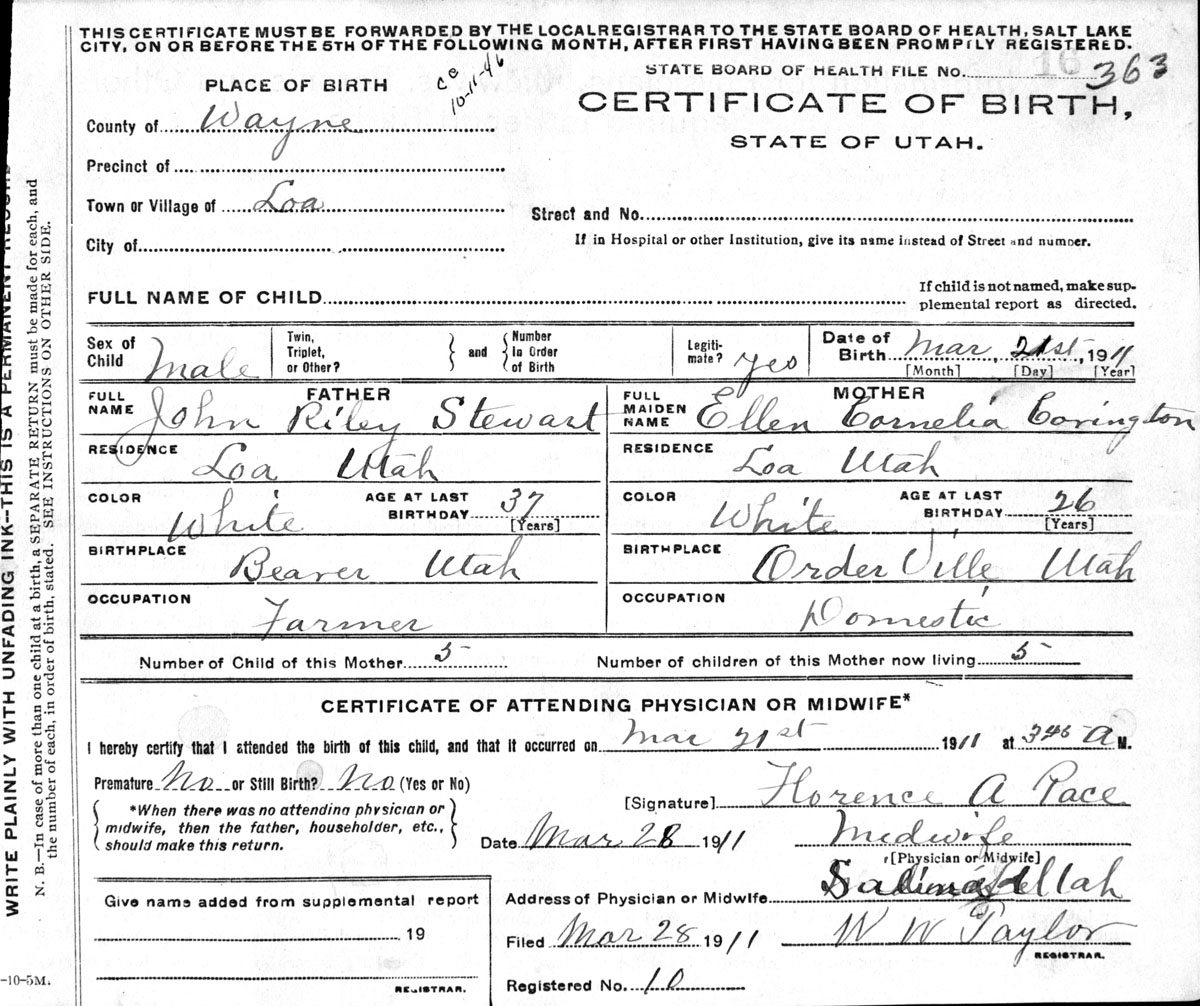 THIS CERTIFICATE MUST BE FORWARDED BY THE LOCAL REGISTRAR TO THE STATE BOARD OF HEALTH, SALT LAKE
CITY, ON OR BEFORE THE 5TH OF THE FOLLOWING MONTH, AFTER FIRST HAVING BEEN PROMPTLY REGISTERED.
STATE BOARD OF HEALTH FILE NO. 363
PLACE OF BIRTH
10-11-46
CERTIFICATE OF BIRTH,
STATE OF UTAH.
County of Wayne
Precinct of
Town or Village of Loa
Street and No.
City of
If in Hospital or other Institution, give its name instead of Street and number.
FULL NAME OF CHILD
If child is not named, make sup-
plemental report as directed.
Sex of Child Male
Twin, Triplet, or Other?
and
Number In Order of Birth
Legiti-mate? Yes
Date of Birth Mar, 21st, 1911
[Month] [Day] [Year]
FATHER
FULL NAME John Riley Stewart
MOTHER
FULL MAIDEN NAME Ellen Cornelia Covington
RESIDENCE Loa Utah
RESIDENCE Loa Utah
COLOR White
AGE AT LAST BIRTHDAY 37
[Years]
COLOR White
AGE AT LAST BIRTHDAY 26
[Years]
BIRTHPLACE Beaver Utah
BIRTHPLACE Order Ville Utah
OCCUPATION Farmer
OCCUPATION Domestic
Number of Child of this Mother 5
Number of children of this Mother now living 5
CERTIFICATE OF ATTENDING PHYSICIAN OR MIDWIFE*
I hereby certify that I attended the birth of this child, and that it occurred on Mar 21st 1911 at 345 A M.
Premature No or Still Birth? No (Yes or No)
[Signature] Florence A Pace
*When there was no attending physician or
midwife, then the father, householder, etc.,
should make this return.
Date Mar 28 1911
Midwife
[Physician or Midwife]
Give name added from supplemental report
19
REGISTRAR.
Address of Physician or Midwife Utah
Filed Mar 28 1911
W W Taylor
REGISTRAR.
Registered No. 10
-10-5M.
WRITE PLAINLY WITH UNFADING INK—THIS IS A PERMANENT RECORD
N. B.—In case of more than one child at a birth, a SEPARATE RETURN must be made for each, and
the number of each, in order of birth, stated. SEE INSTRUCTIONS ON OTHER SIDE.